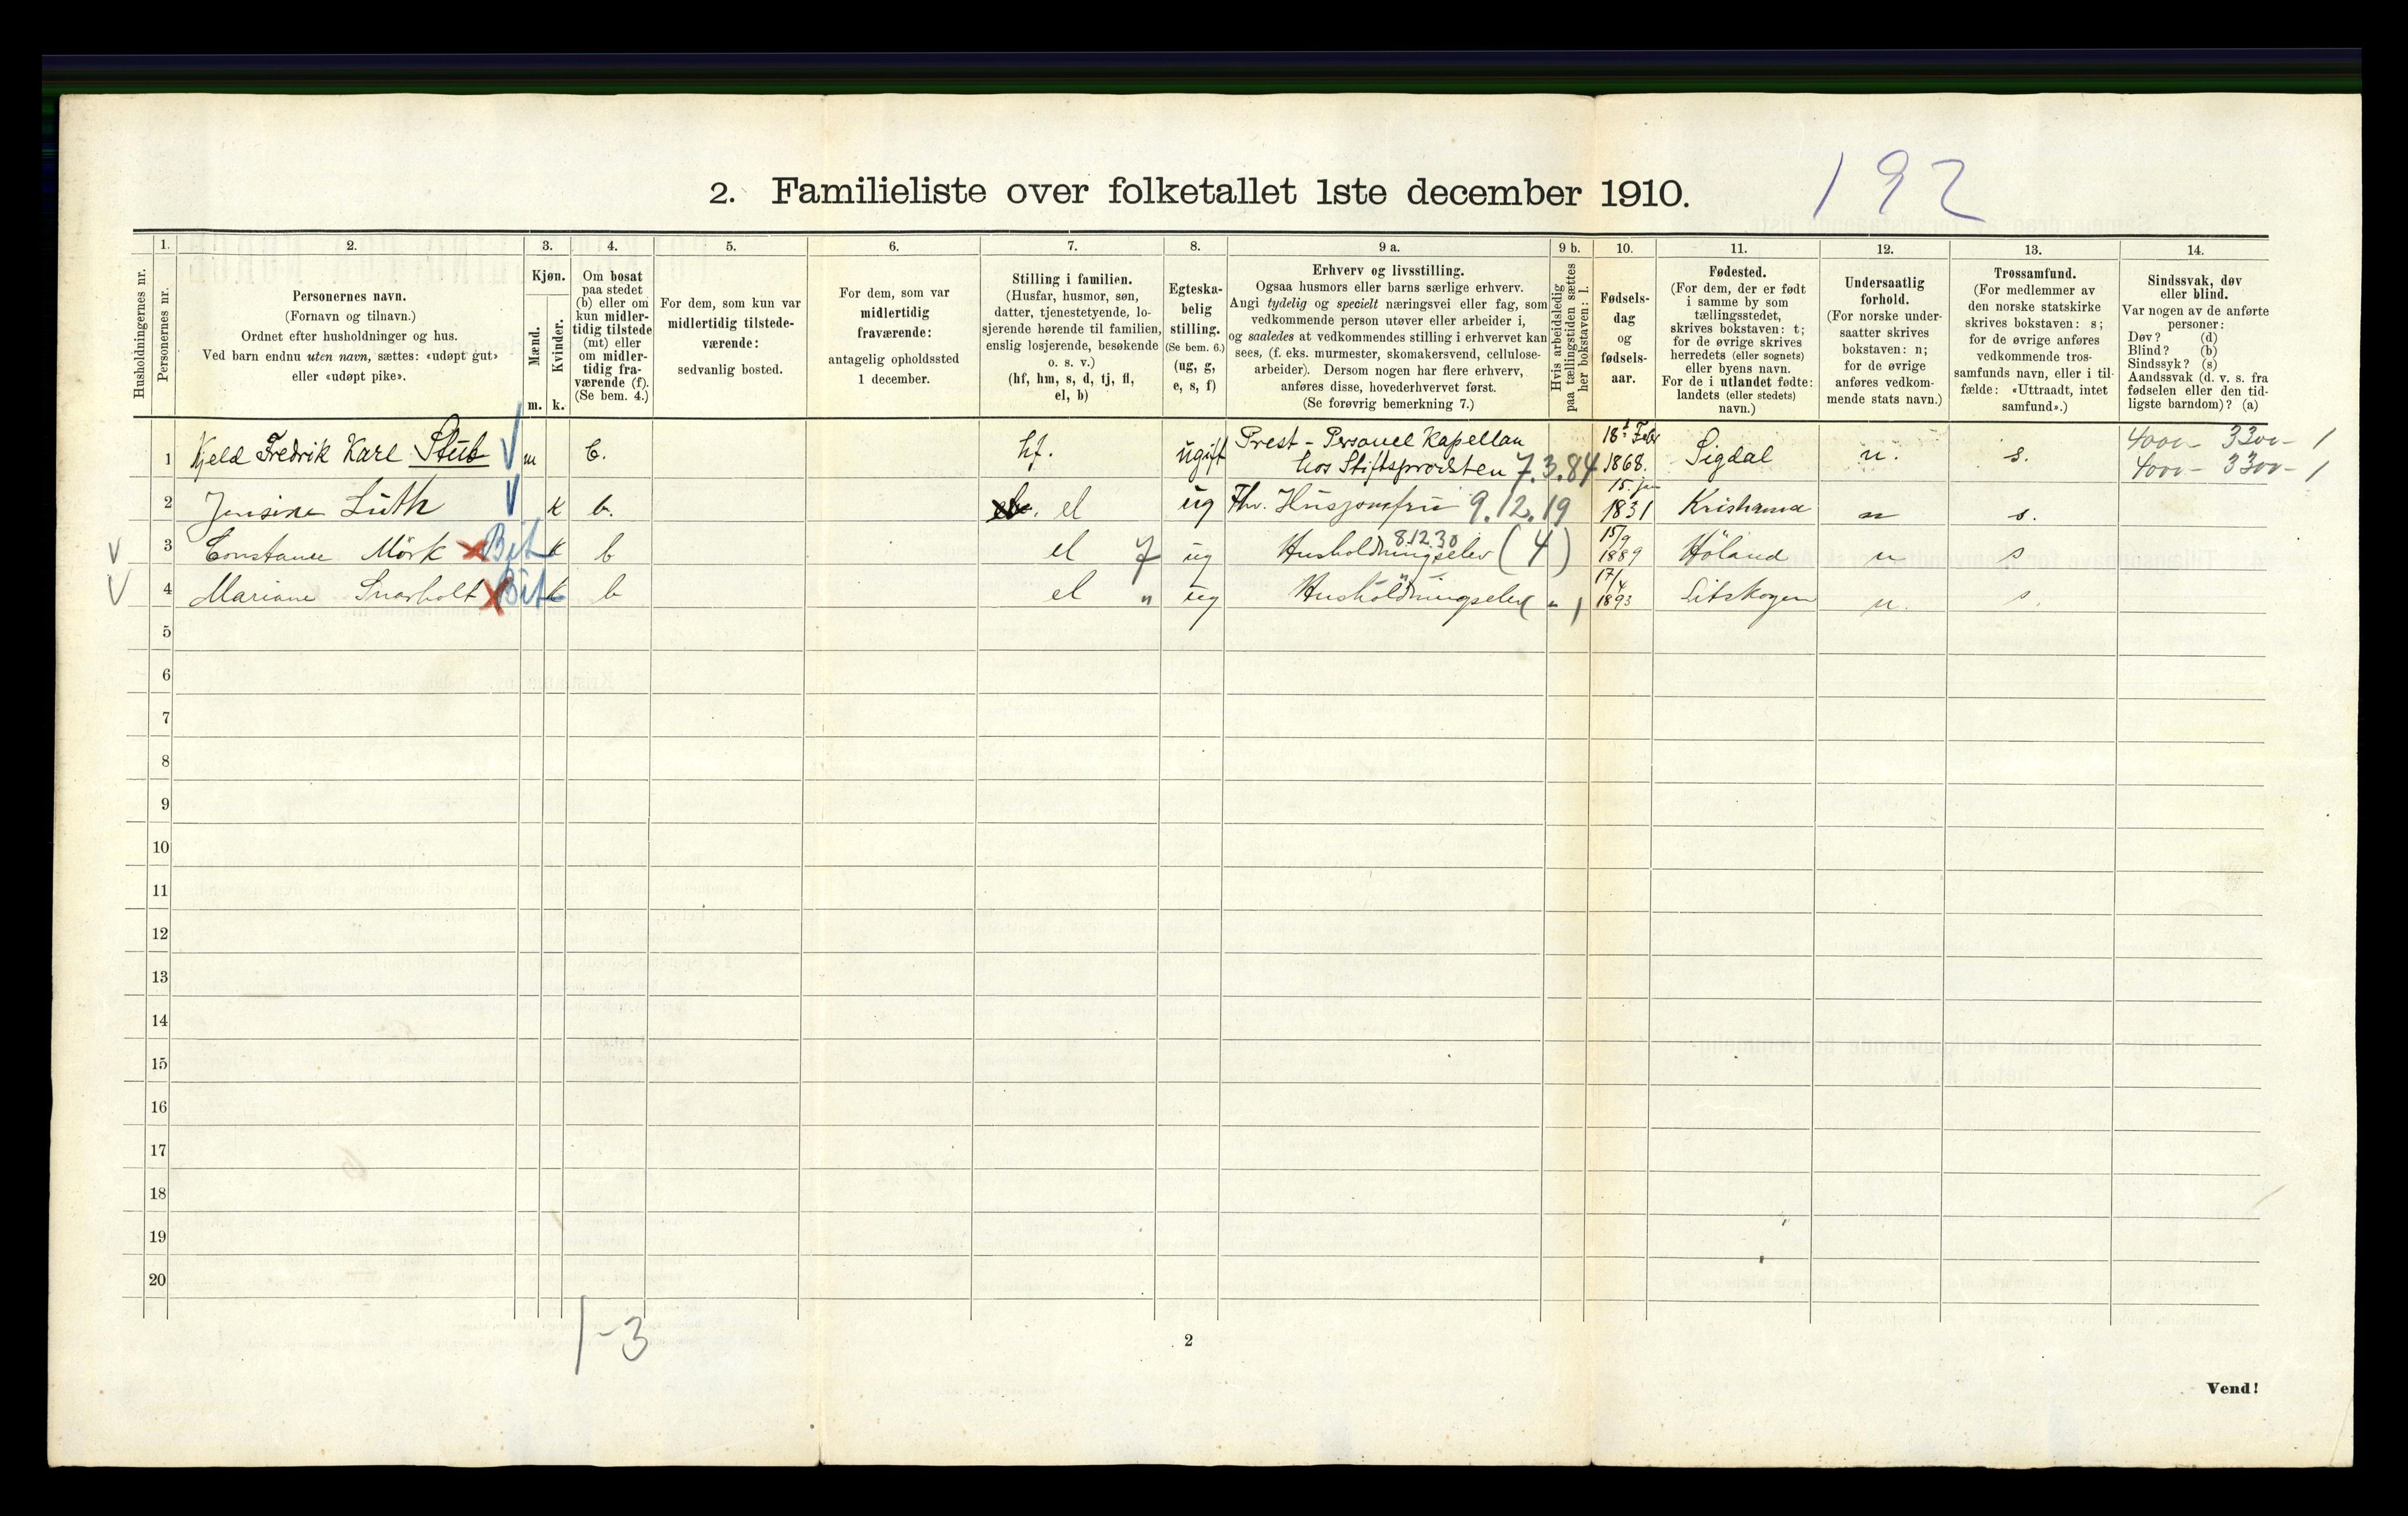 2. Familieliste over folketallet 1ste december 1910.
192
Husholdningernes nr.
1.
Personernes nr.
2.
Personernes navn.
(Fornavn og tilnavn.)
Ordnet efter husholdninger og hus.
Ved barn endnu uten navn, sættes: «udøpt gut»
eller «udøpt pike».
3.
Kjøn.
Mænd.
Kvinder.
m. k.
4.
Om bosat
paa stedet
(b) eller om
kun midler-
tidig tilstede
(mt) eller
om midler-
tidig fra-
værende (f).
(Se bem. 4.)
5.
For dem, som kun var
midlertidig tilstede-
værende:
sedvanlig bosted.
6.
For dem, som var
midlertidig
fraværende:
antagelig opholdssted
1 december.
7.
Stilling i familien.
(Husfar, husmor, søn,
datter, tjenestetyende, lo-
sjerende hørende til familien,
enslig losjerende, besøkende
o. s. v.)
(hf, hm, s, d, tj, fl,
el, b)
8.
Egteska-
belig
stilling.
(Se bem. 6.)
(ug, g,
e, s, f)
9 a.
Erhverv og livsstilling.
Ogsaa husmors eller barns særlige erhverv.
Angi tydelig og specielt næringsvei eller fag, som
vedkommende person utøver eller arbeider i,
og saaledes at vedkommendes stilling i erhvervet kan
sees, (f. eks. murmester, skomakersvend, cellulose-
arbeider). Dersom nogen har flere erhverv,
anføres disse, hovederhvervet først.
(Se forøvrig bemerkning 7.)
9 b.
Hvis arbeidsledig
paa tællingstiden sættes
her bokstaven: l.
10.
Fødsels-
dag
og
fødsels-
aar.
11.
Fødested.
(For dem, der er født
i samme by som
tællingsstedet,
skrives bokstaven: t;
for de øvrige skrives
herredets (eller sognets)
eller byens navn.
For de i utlandet fødte:
landets (eller stedets)
navn.)
12.
Undersaatlig
forhold.
(For norske under-
saatter skrives
bokstaven: n;
for de øvrige
anføres vedkom-
mende stats navn.)
13.
Trossamfund.
(For medlemmer av
den norske statskirke
skrives bokstaven: s;
for de øvrige anføres
vedkommende tros-
samfunds navn, eller i til-
fælde: «Uttraadt, intet
samfund».)
14.
Sindssvak, døv
eller blind.
Var nogen av de anførte
personer:
Døv? (d)
Blind? (b)
Sindssyk? (s)
Aandssvak (d. v. s. fra
fødselen eller den tid-
ligste barndom)? (a)
1 Kjeld Fredrik Karl Stub m b. hf. ugift Prest - Personel Kapellan 18 Febr Sigdal n. s. 4000- 3300- 1
hos Stiftsprovsten 7.3.84 1868. 4000- 3300- 1
2 Jensine Luth k b. el ug Fhv. Husjomfru 9.12.19 15. jan 1831 Kristiania n s.
3 Constance Mörk Bit k b el 7 ug Husholdningselev 8.12.30 (4) 15/9 1889 Höland n s
4 Mariane Snarholt Bit k b el " ug Husholdningselev ( " ) 17/4 1893 Sitskogen n. s.
5
6
7
8
9
10
11
12
13
14
15
16
17
18
19
20
1-3
2
Vend!